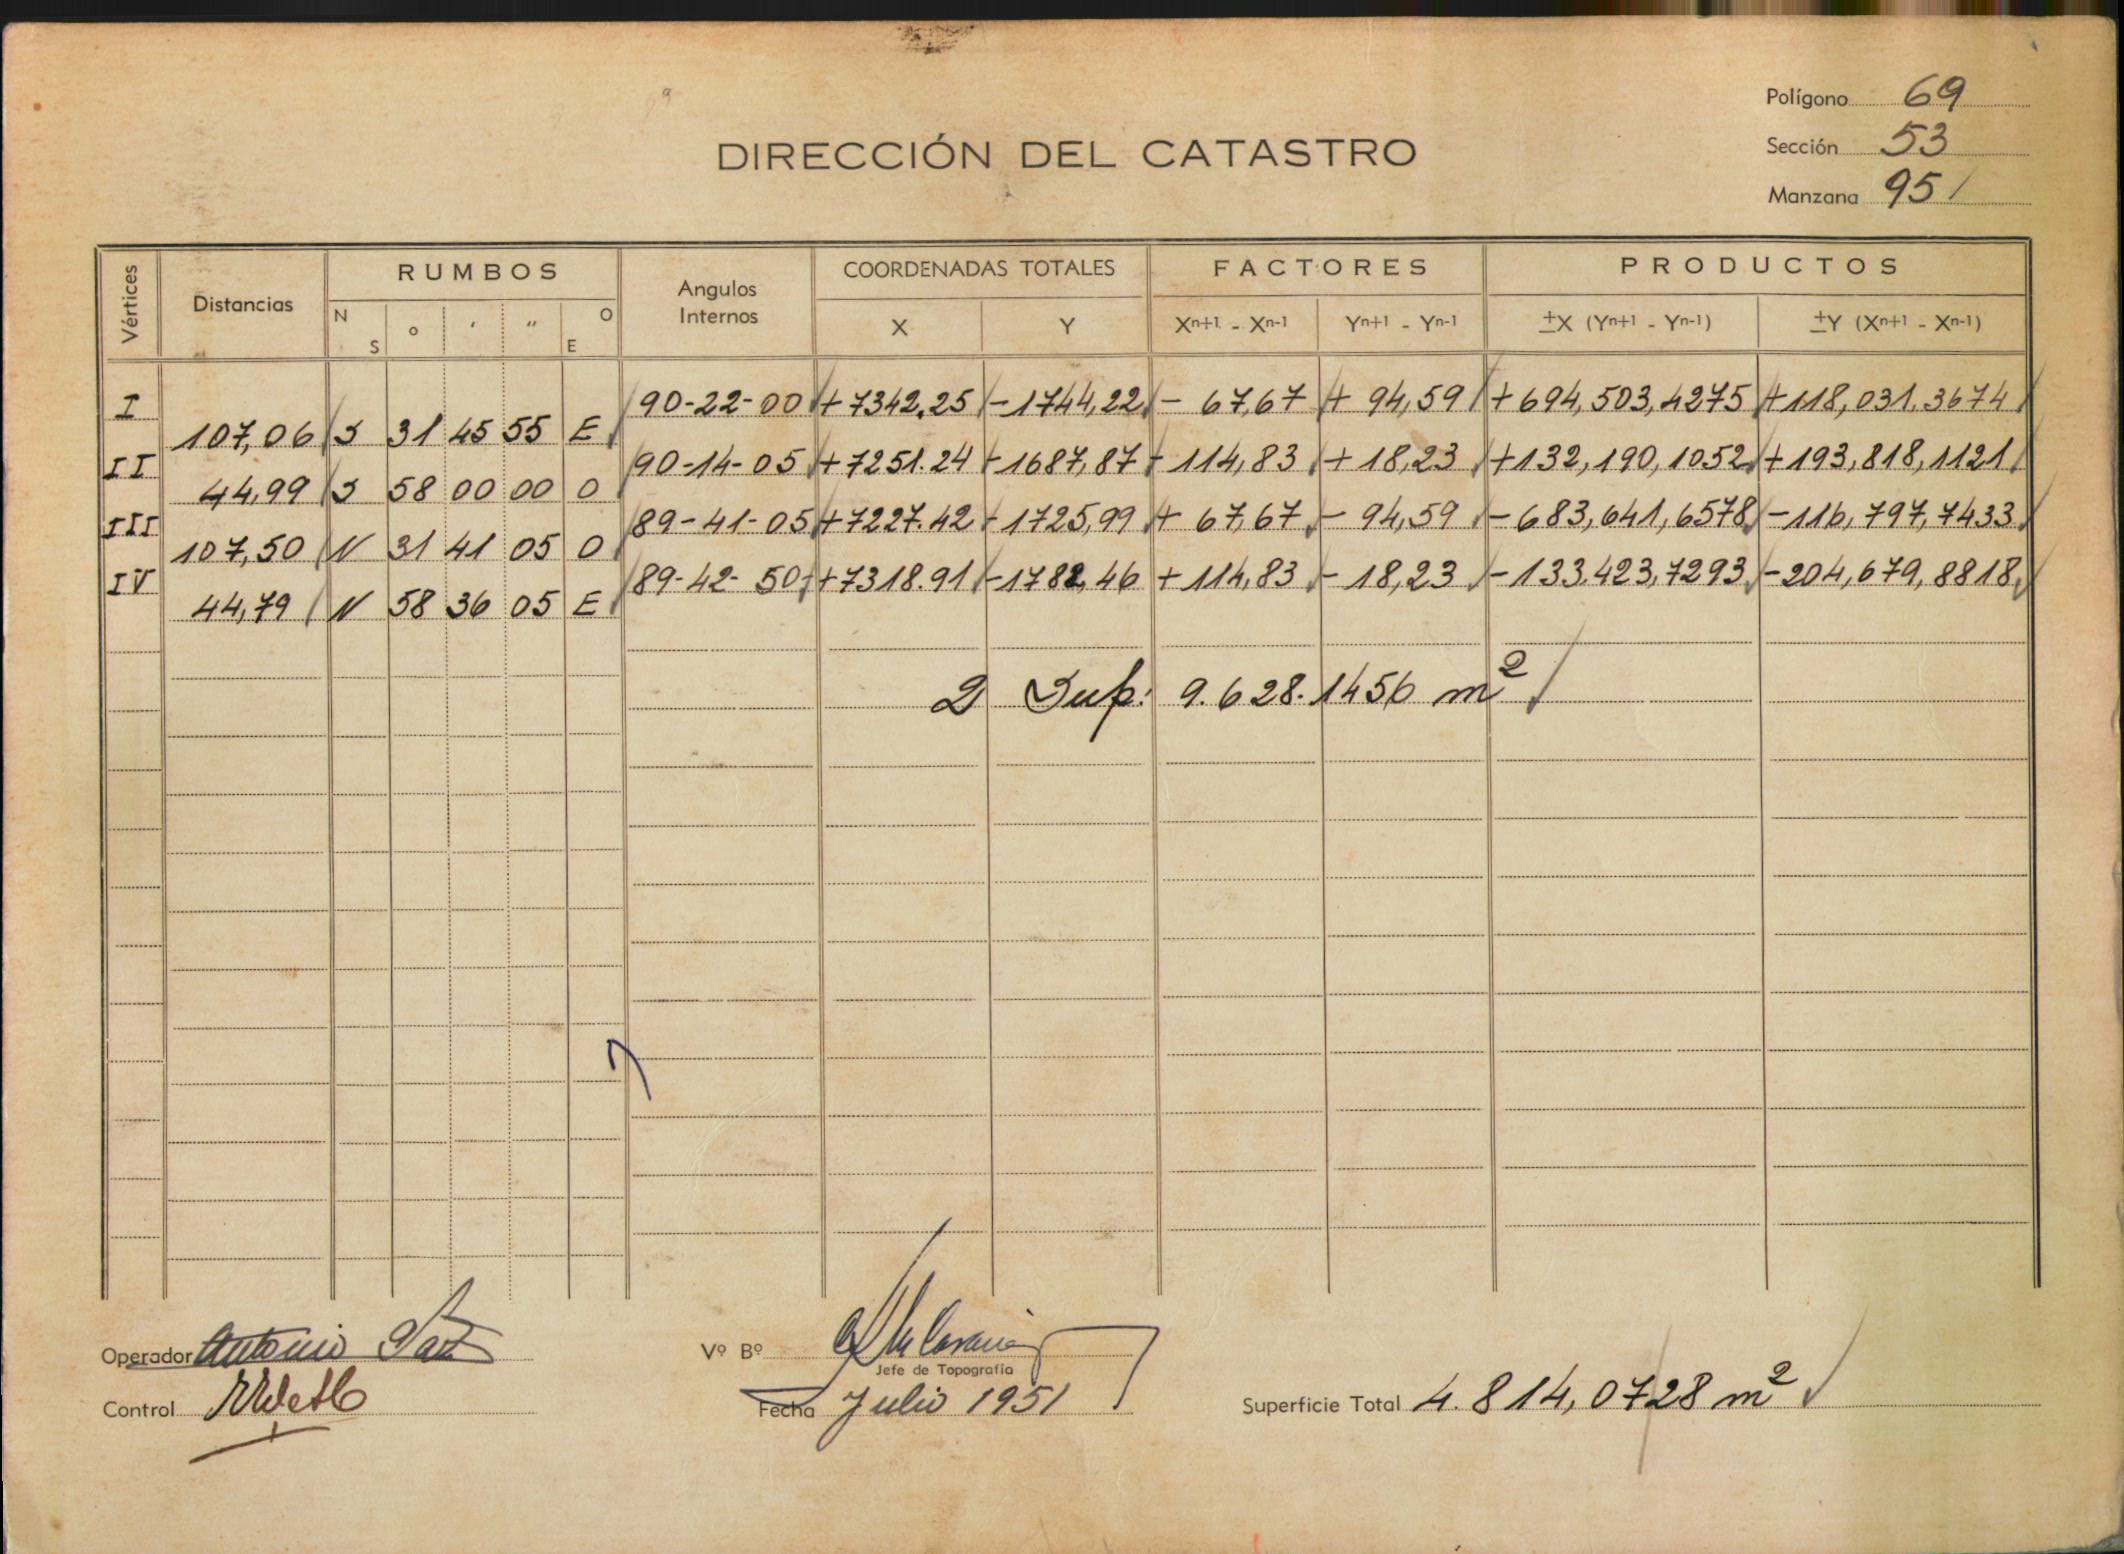 Polígono 69
DIRECCIÓN DEL CATASTRO
Sección 53
Manzana 951
Vértices Distancias RUMBOS Angulos Internos COORDENADAS TOTALES FACTORES PRODUCTOS
N S o ' " O E X Y Xn+1 - Xn-1 Yn+1 - Yn-1 ±X (Yn+1 - Yn-1) ±Y (Xn+1 - Xn-1)
I 90-22-00 +7342.25 -1744,22 - 67,67 + 94,59 +694,503,4275 +118,031.3674
107,06 S 31 45 55 E
II 90-14-05 +7251.24 -1687,87 - 114,83 + 18,23 +132,190,1052 +193,818,1121
44,99 S 58 00 00 O
III 89-41-05 +7227.42 -1725,99 + 67,67 - 94,59 -683,641,6578 -116,797,7433
107,50 N 31 41 05 O
IV 89-42-50 +7318.91 -1782,46 +114,83 - 18,23 -133.423,7293 -204,679,8818
44,79 N 58 36 05 E
2 Sup: 9.628.1456 m²
Operador Antonio Paz
Vº Bº
Jefe de Topografía
Control
Fecha Julio 1951
Superficie Total 4.814,0728 m²